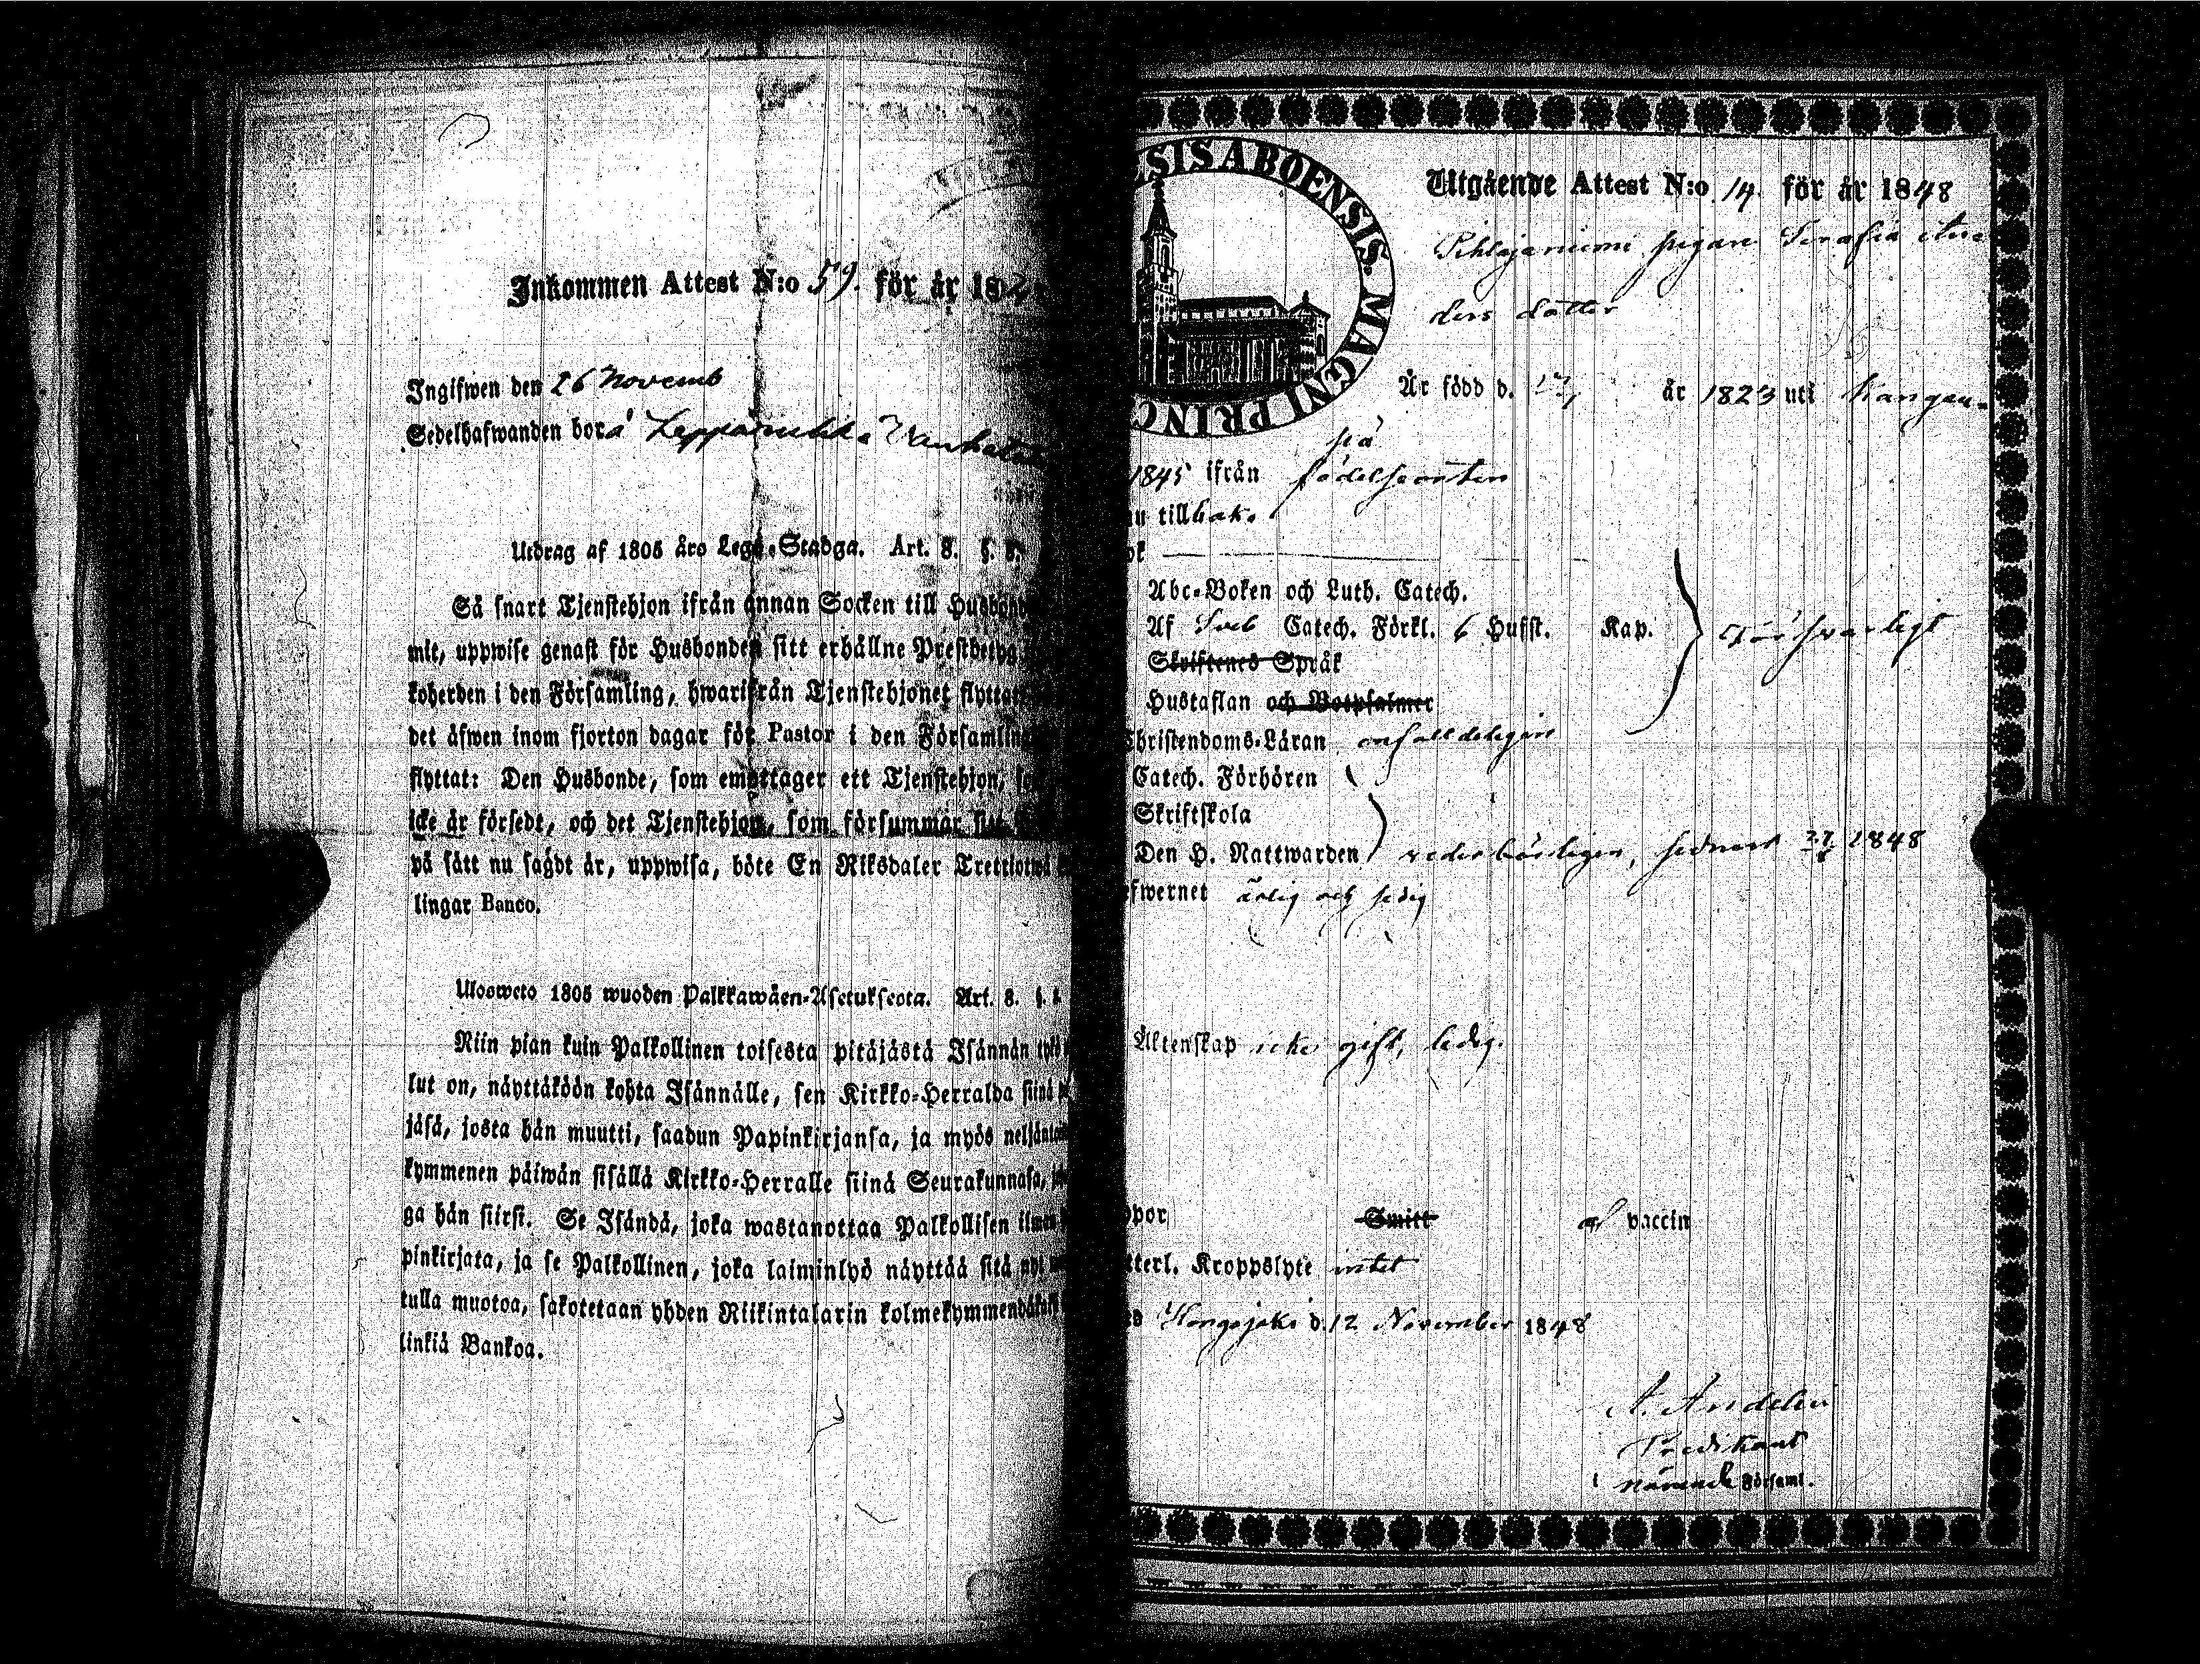 Inkommen Attest N:o 59. för år 18
Ingifwen den 26 Novemb
Sedelhafwanden bor å
Utdrag af 1805 års Lego-Stadga. Art. 8. §.
Så snart Tjenstehjon ifrån annan Socken till Husbon
mit, uppwise genast för Husbonden sitt erhållne Prestbetyg
koherden i den Församling, hwarifrån Tjenstehjonet flyttat
det äfwen inom fjorton dagar för Pastor i den Församling
flyttat: Den Husbonde, som emottager ett Tjenstehjon, so
icke är försedt, och det Tjenstehjon, som försummar sitt
på sätt nu sagdt är, uppwisa, böte En Riksdaler Trettiotwå
lingar Banco.
Ulosweto 1805 wuoden Palkkawäen-Asetuksesta. Art. 8. §.
Niin pian kuin Palkollinen toisesta pitäjästä Isännän tykö
lut on, näyttäköön kohta Isännälle, sen Kirkko-Herralda siinä
jäsä, josta hän muutti, saadun Papinkirjansa, ja myös neljän
kymmenen päiwän sisällä Kirkko-Herralle siinä Seurakunnasa,
ga hän siirsi. Se Isändä, joka wastanottaa Palkollisen ilman
pinkirjata, ja se Palkollinen, joka laiminlyö näyttää sitä nyt
tulla muotoa, sakotetaan yhden Riikintalarin kolmekymmendä
linkiä Bankoa.
ESIS ABOENSIS. MAGNI PRINC
Utgående Attest N:o 14. för år 1848
pigan Serafia
ders dotter
Är född d. år 1823 uti
på
1845 ifrån födelseorten
nu tillbaka
ok
Abc-Boken och Luth. Catech.
Af Sveb Catech. Förkl. 6 Hufst. Kap. försvarligt
Skriftenes Språk
Hustaflan och Botpsalmer
Christendoms-Läran
Catech. Förhören
Skriftskola
Den H. Nattwarden vederbörligen, sednast 1848
efwernet ärlig och sedig
Äktenskap icke gift, ledig.
ppor Smitt af vaccin
tterl. Kroppslyte intet
d. 12 November 1848
A.
Predikant
i nämnde Församl.